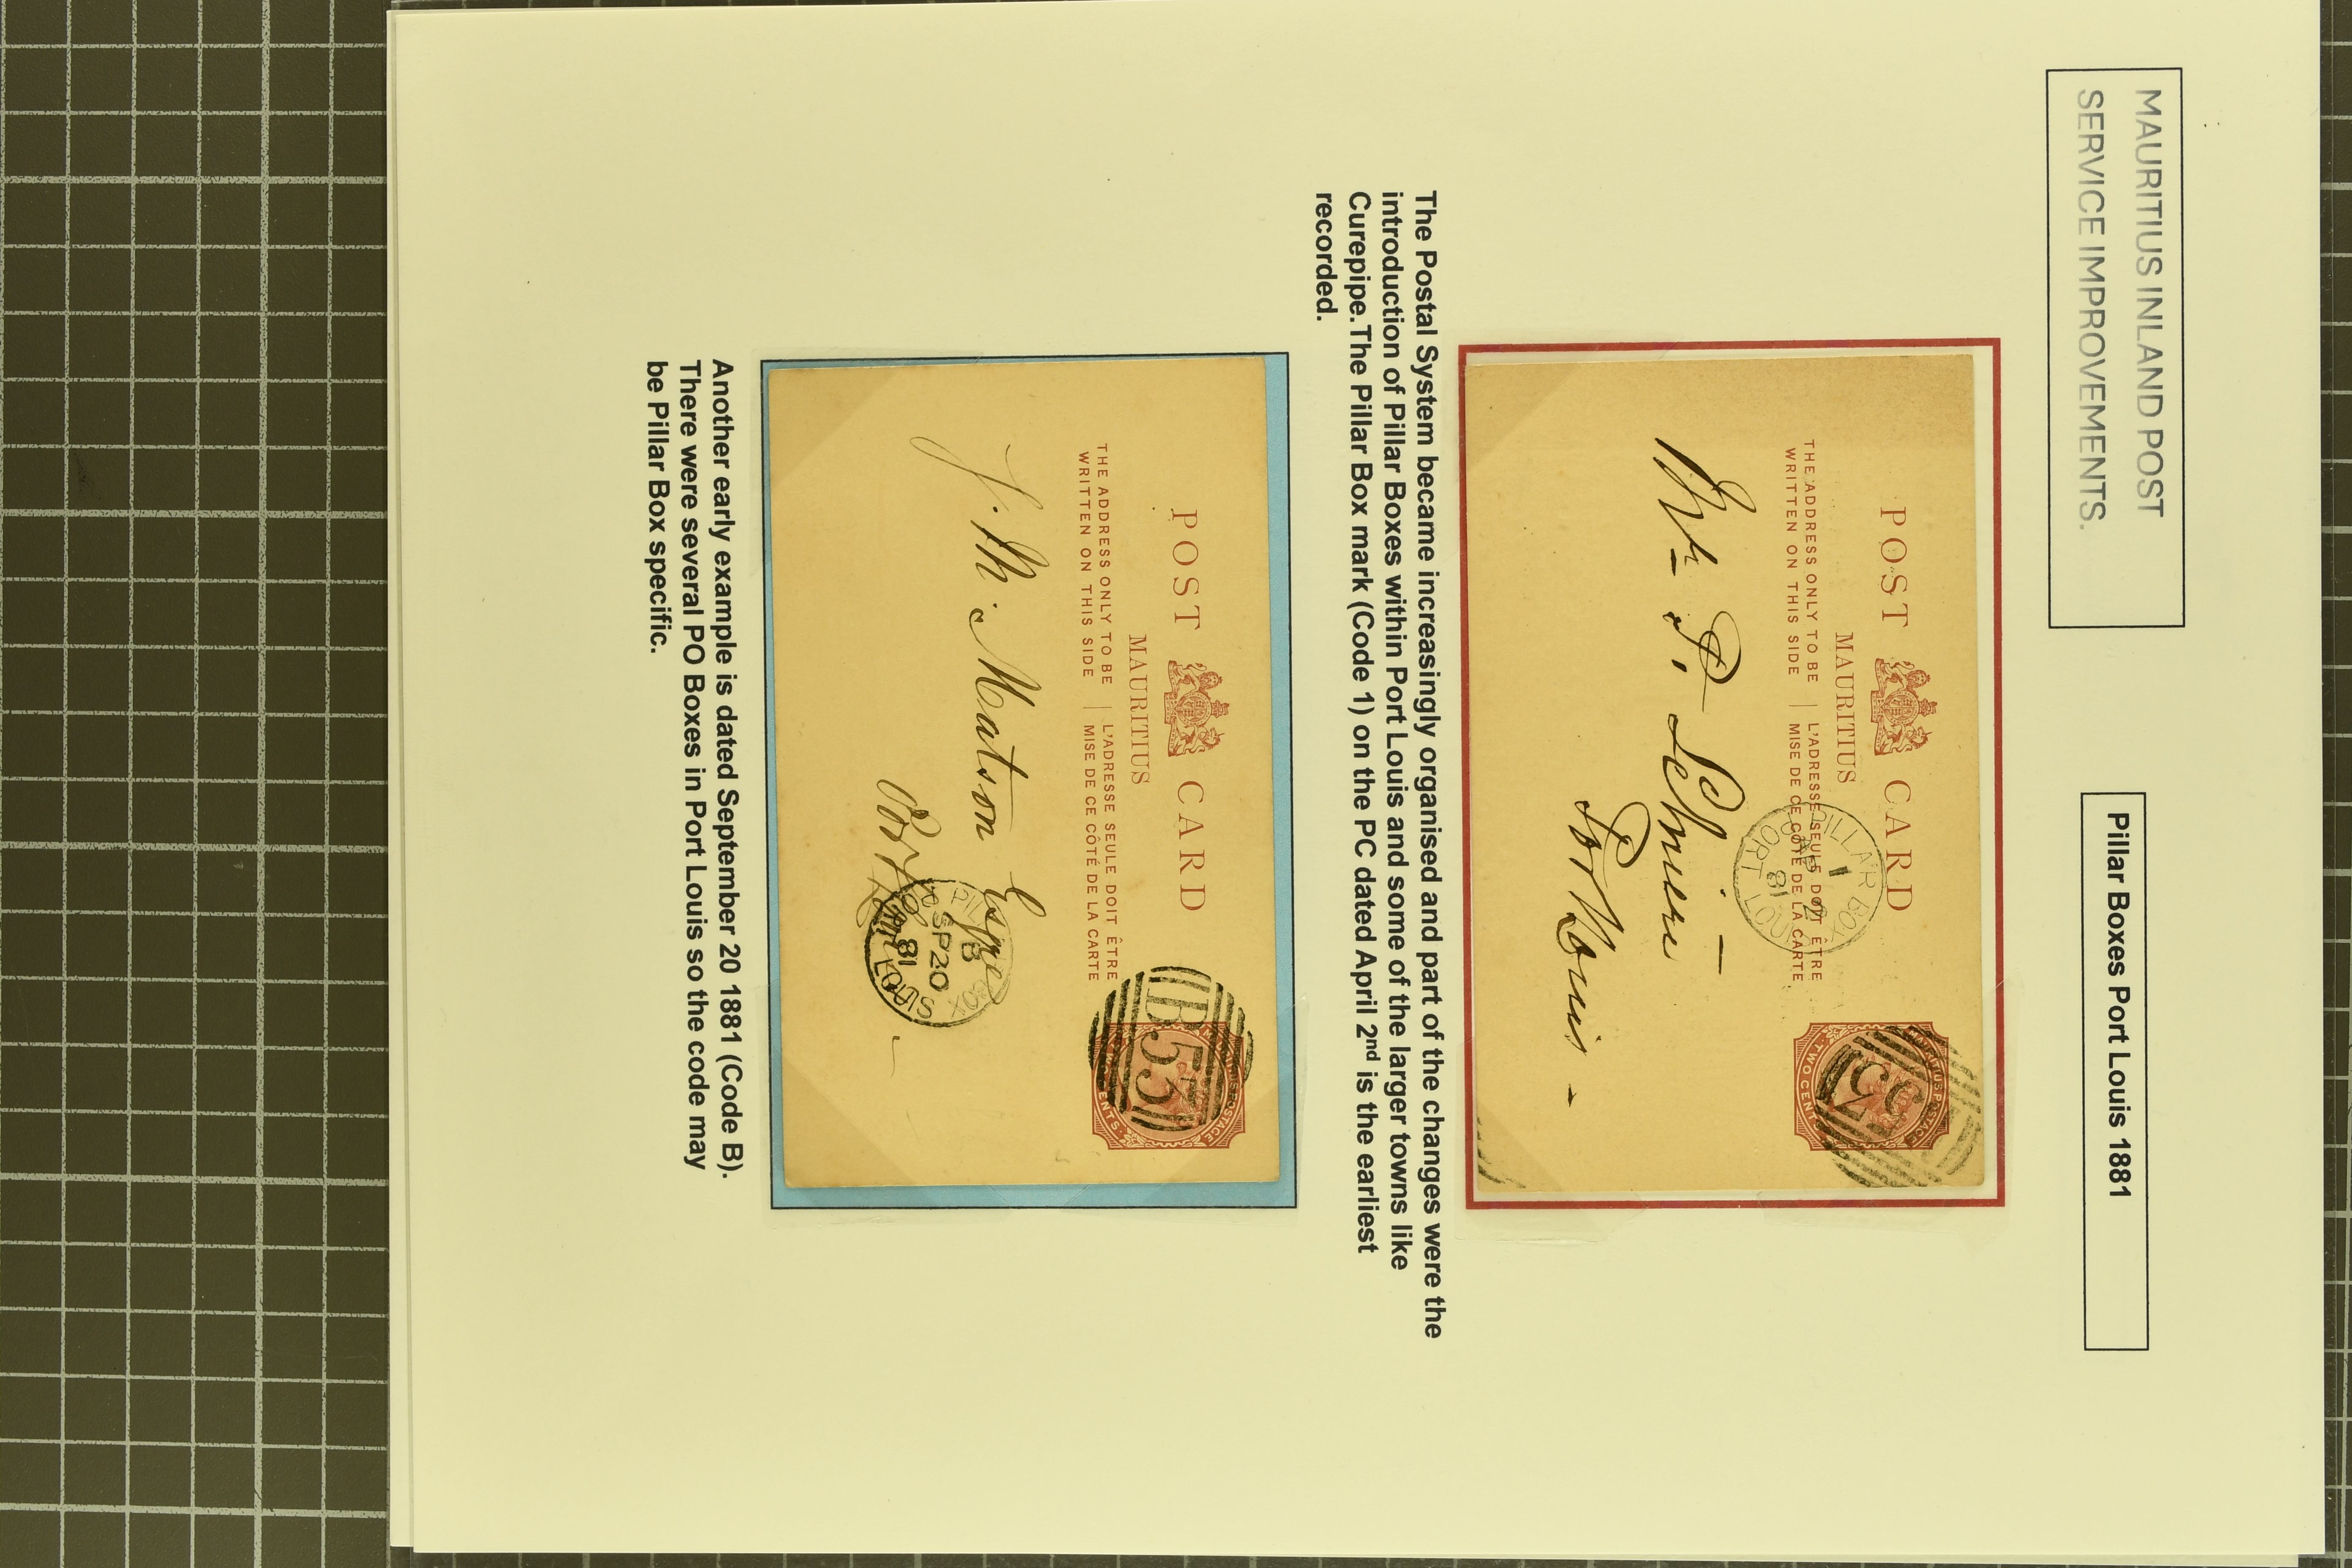 MAURITIUS INLAND POST
SERVICE IMPROVEMENTS.
Pillar Boxes Port Louis 1881
POST CARD
MAURITIUS
THE ADDRESS ONLY TO BE
WRITTEN ON THIS SIDE
L'ADRESSE SEULE DOIT ÊTRE
MISE DE CE CÔTÉ DE LA CARTE
PILLAR BOX
1
AP 2
81
PORT LOUIS
MAURITIUS POSTAGE
TWO CENTS
53
Mr. A.
Port Louis
The Postal System became increasingly organised and part of the changes were the
introduction of Pillar Boxes within Port Louis and some of the larger towns like
Curepipe.The Pillar Box mark (Code 1) on the PC dated April 2nd is the earliest
recorded.
POST CARD
MAURITIUS
THE ADDRESS ONLY TO BE
WRITTEN ON THIS SIDE
L'ADRESSE SEULE DOIT ÊTRE
MISE DE CE CÔTÉ DE LA CARTE
B53
POSTAGE
TWO CENTS
J. M. Matson Esqre
Port Louis
PILLAR BOX
B
SP 20
81
PORT LOUIS
Another early example is dated September 20 1881 (Code B).
There were several PO Boxes in Port Louis so the code may
be Pillar Box specific.